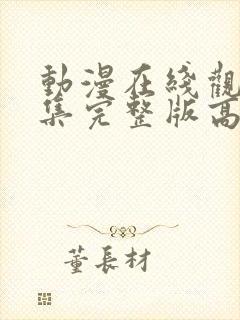 動漫在綫觀
集完整版高
董長材